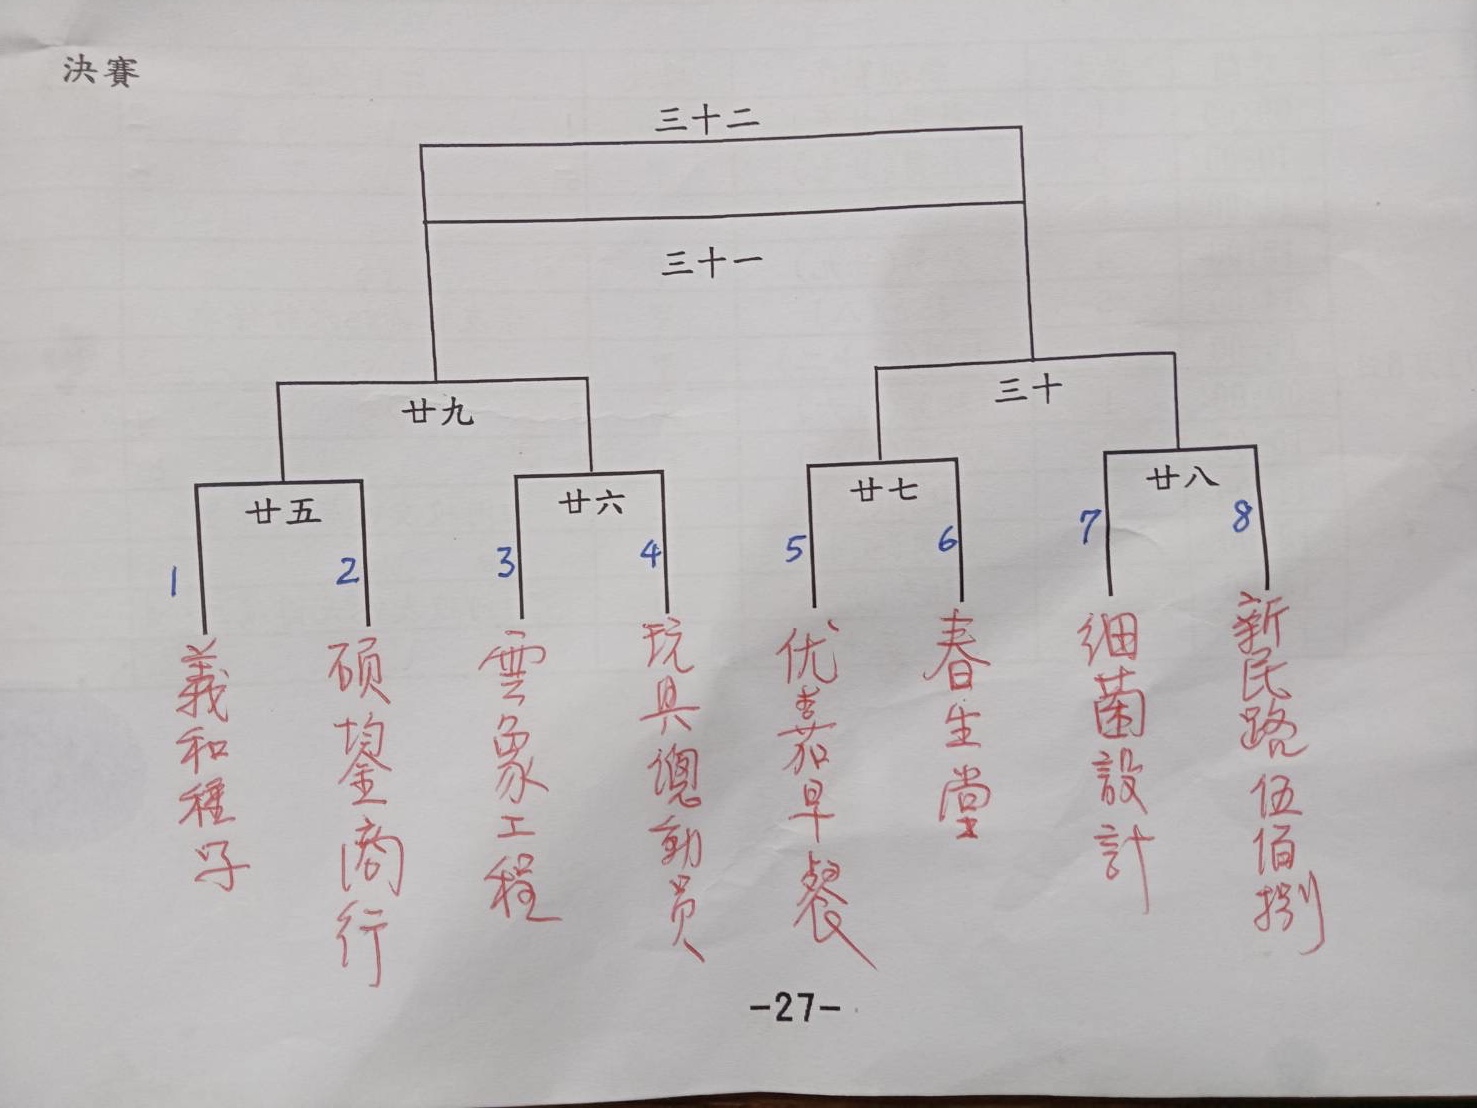 決賽
三十二
三十一
廿九
三十
廿五
廿六
廿七
廿八
1
2
3
4
5
6
7
8
義和種子
碩鋆商行
雲象工程
玩具總動員
优喜茄早餐
春生堂
细菌設計
新民路伍佰捌
-27-